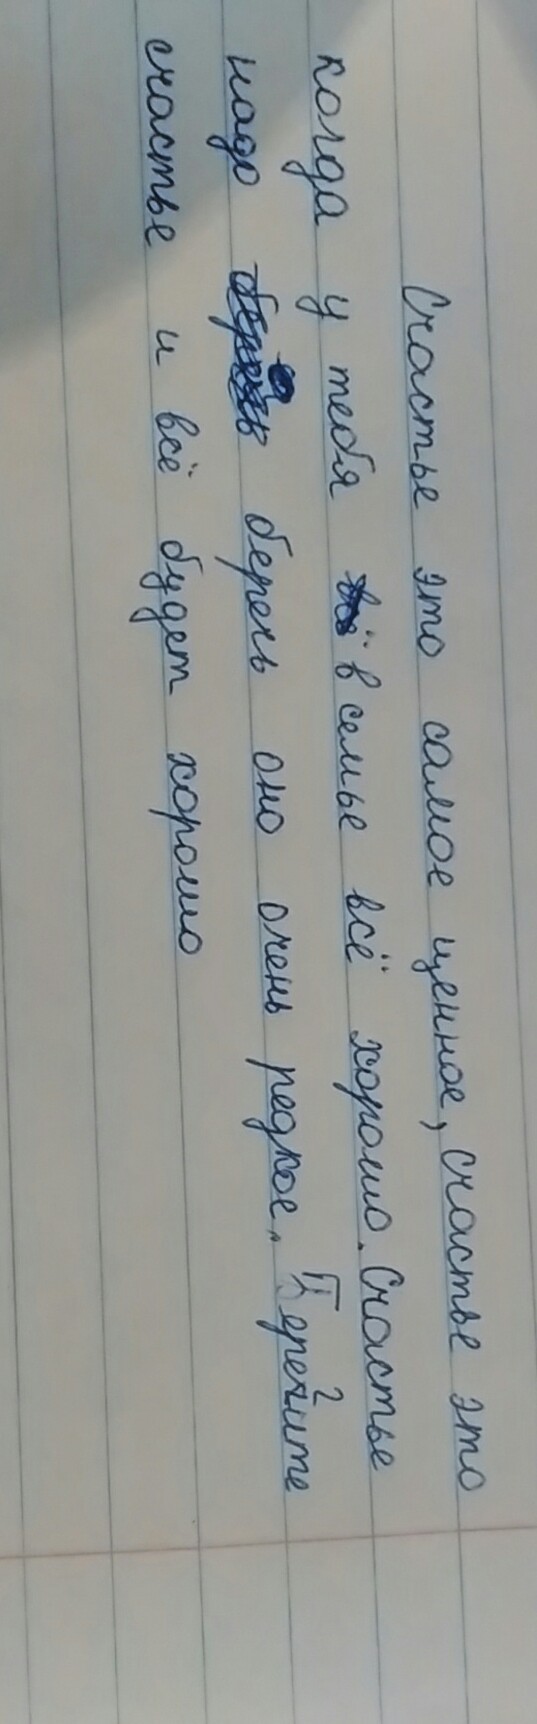 Счастье это самое ценное, счастье это
когда у тебя в семье всё хорошо. Счастье
надо беречь оно очень редкое. Берегите
счастье и всё будет хорошо